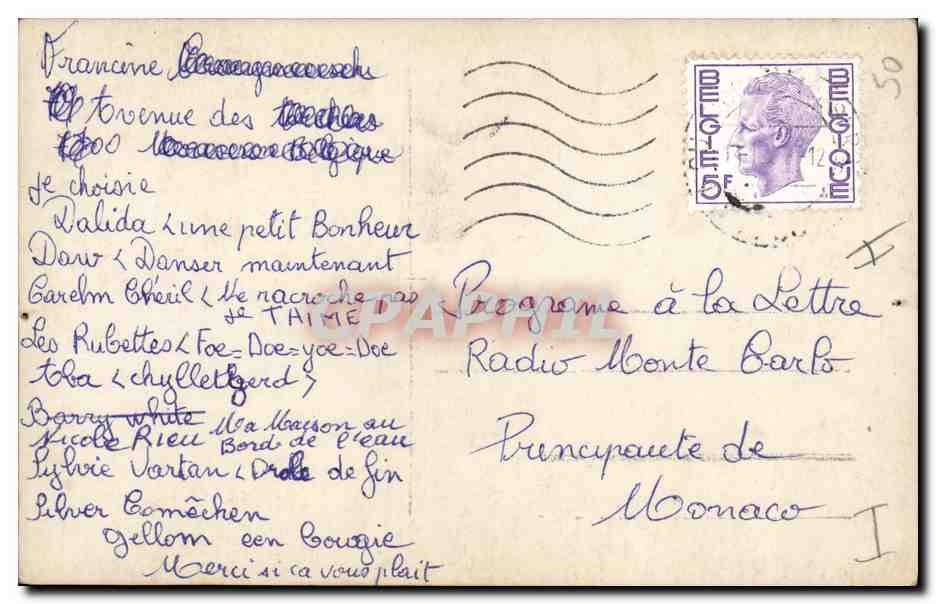 Francine
Avenue des
je choisie
Dalida < une petit Bonheur
Dave < Danser maintenant
Carelm Chéeil < Ne racroche pas
Je T'AIME
Les Rubettes < Foe=Doe=yoe=Doe
Aba < chylletgerd >
Barry white
Nicole Rieu Ma Maison au
Bord de l'eau
Sylvie Vartan < Drole de fin
Silver Comôchen
gellom een Bougie
Merci si ca vous plait
BELGIE 5F
BELGIQUE
12
50
Programe à la Lettre
Radio Monte Carlo
Principaute de
Monaco
I
CPAPHIL